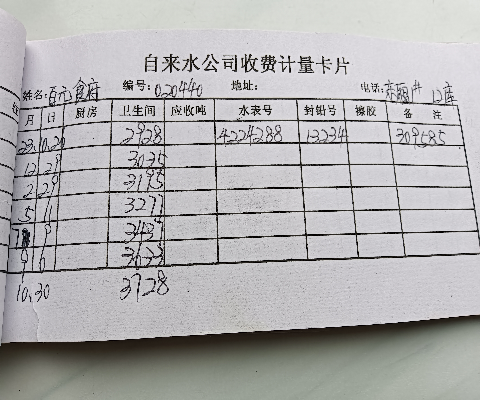 自来水公司收费计量卡片
姓名: 百元食府 编号: 020440 地址: 电话: 12库
月 日 厨房 卫生间 应收吨 水表号 封铅号 擦胶 备注
23.10.20 2928 4224288 12234 309685
12 29 3035
2 29 3195
5 11 3277
9 3437
9 6 3633
10.30 3728